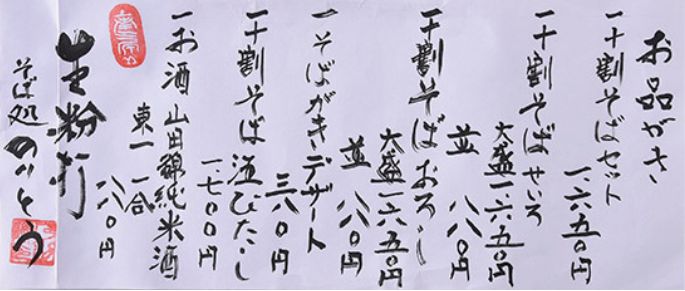 お品がき
一十割そばセット
一六五〇円
一十割そばせいろ
大盛一六五〇円
並 八八〇円
一十割そばおろし
大盛一六五〇円
並 八八〇円
一そばがきデザート
三八〇円
一十割そば びたし
一.七〇〇円
一お酒 山田錦純米酒
東一 一合
八八〇円
生粉打
そば処